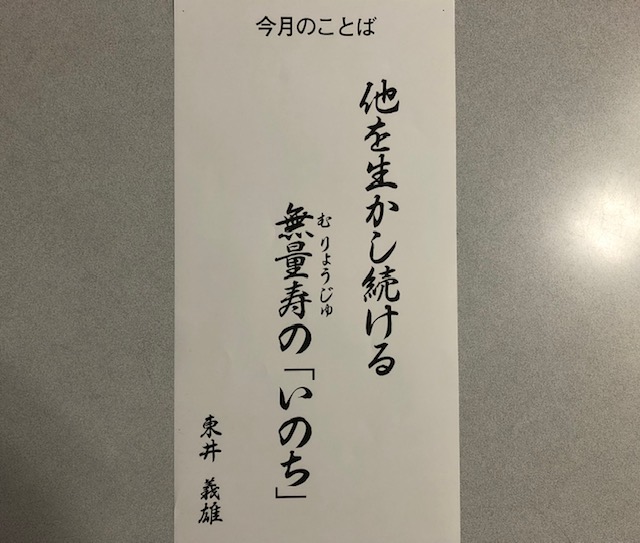 今月のことば
他を生かし続ける
むりょうじゅ
無量寿の「いのち」
東井 義雄